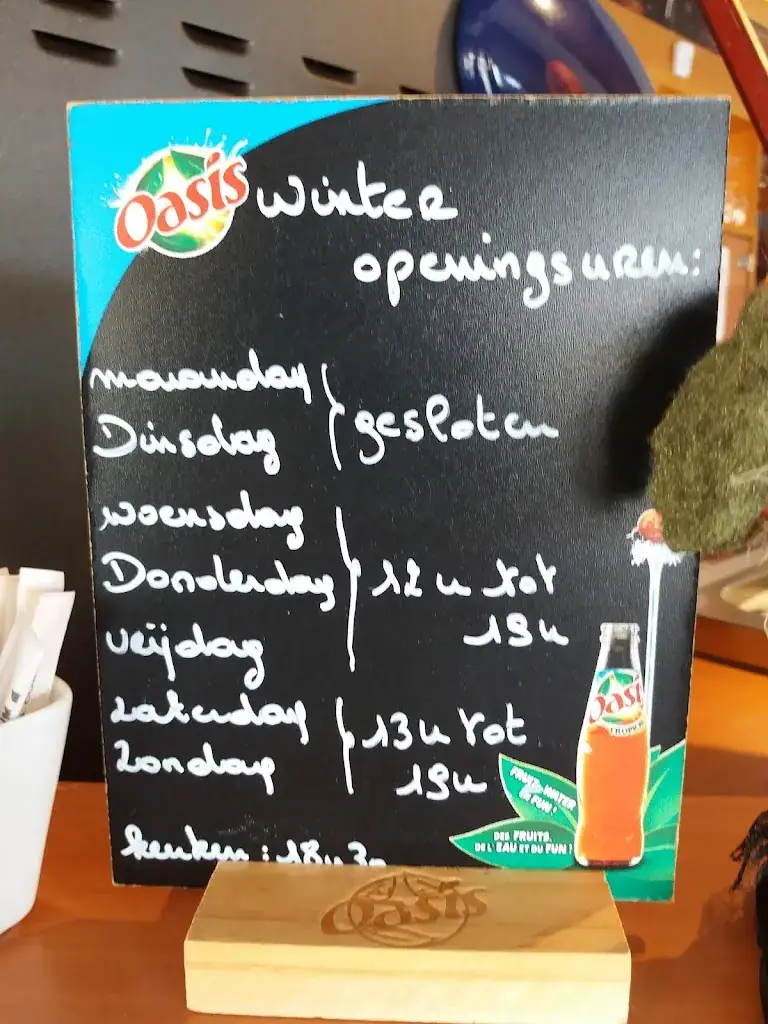 Oasis
Winter
openingsuren:
maandag
Dinsdag
gesloten
woensdag
Donderdag
vrijdag
12u tot
19u
zaterdag
Zondag
13u tot
19u
keuken: 18u30
Oasis
TROPICAL
FRUIT, WATER
& FUN!
DES FRUITS,
DE L'EAU ET DU FUN!
Oasis